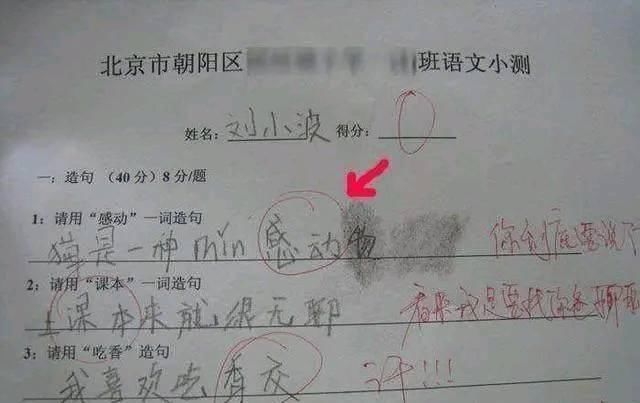 北京市朝阳区 班语文小测
姓名：刘小波 得分：0
一：造句 （40分）8分/题
1：请用“感动”一词造句
猫是一种min感动物 你到底要说什
2：请用“课本”一词造句
上课本来就很无聊 看来我是要找你爸聊聊
3：请用“吃香”造句
我喜欢吃香交 汗!!!